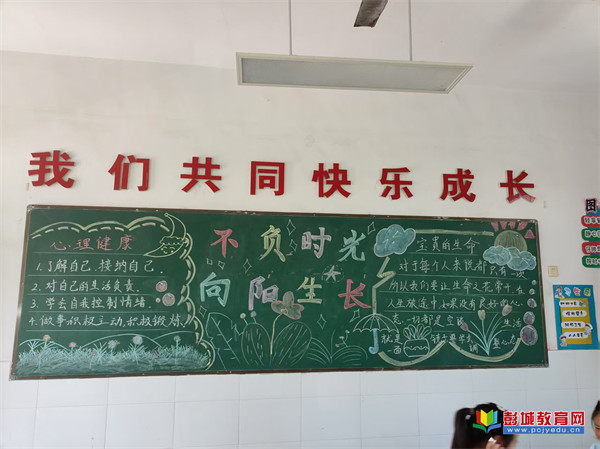 我们共同快乐成长
心理健康
1.了解自己、接纳自己.
2.对自己的生活负责.
3.学会自我控制情绪.
4.做事积极主动,积极锻炼
不负时光
向阳生长
宝贵的生命
对于每个人来说都只有一次
所以我们要让生命之花常开,在
人生旅途中如果没有良好的心
态一切都是空谈 生活
就是
图
彭城教育网
www.pcjyedu.cn